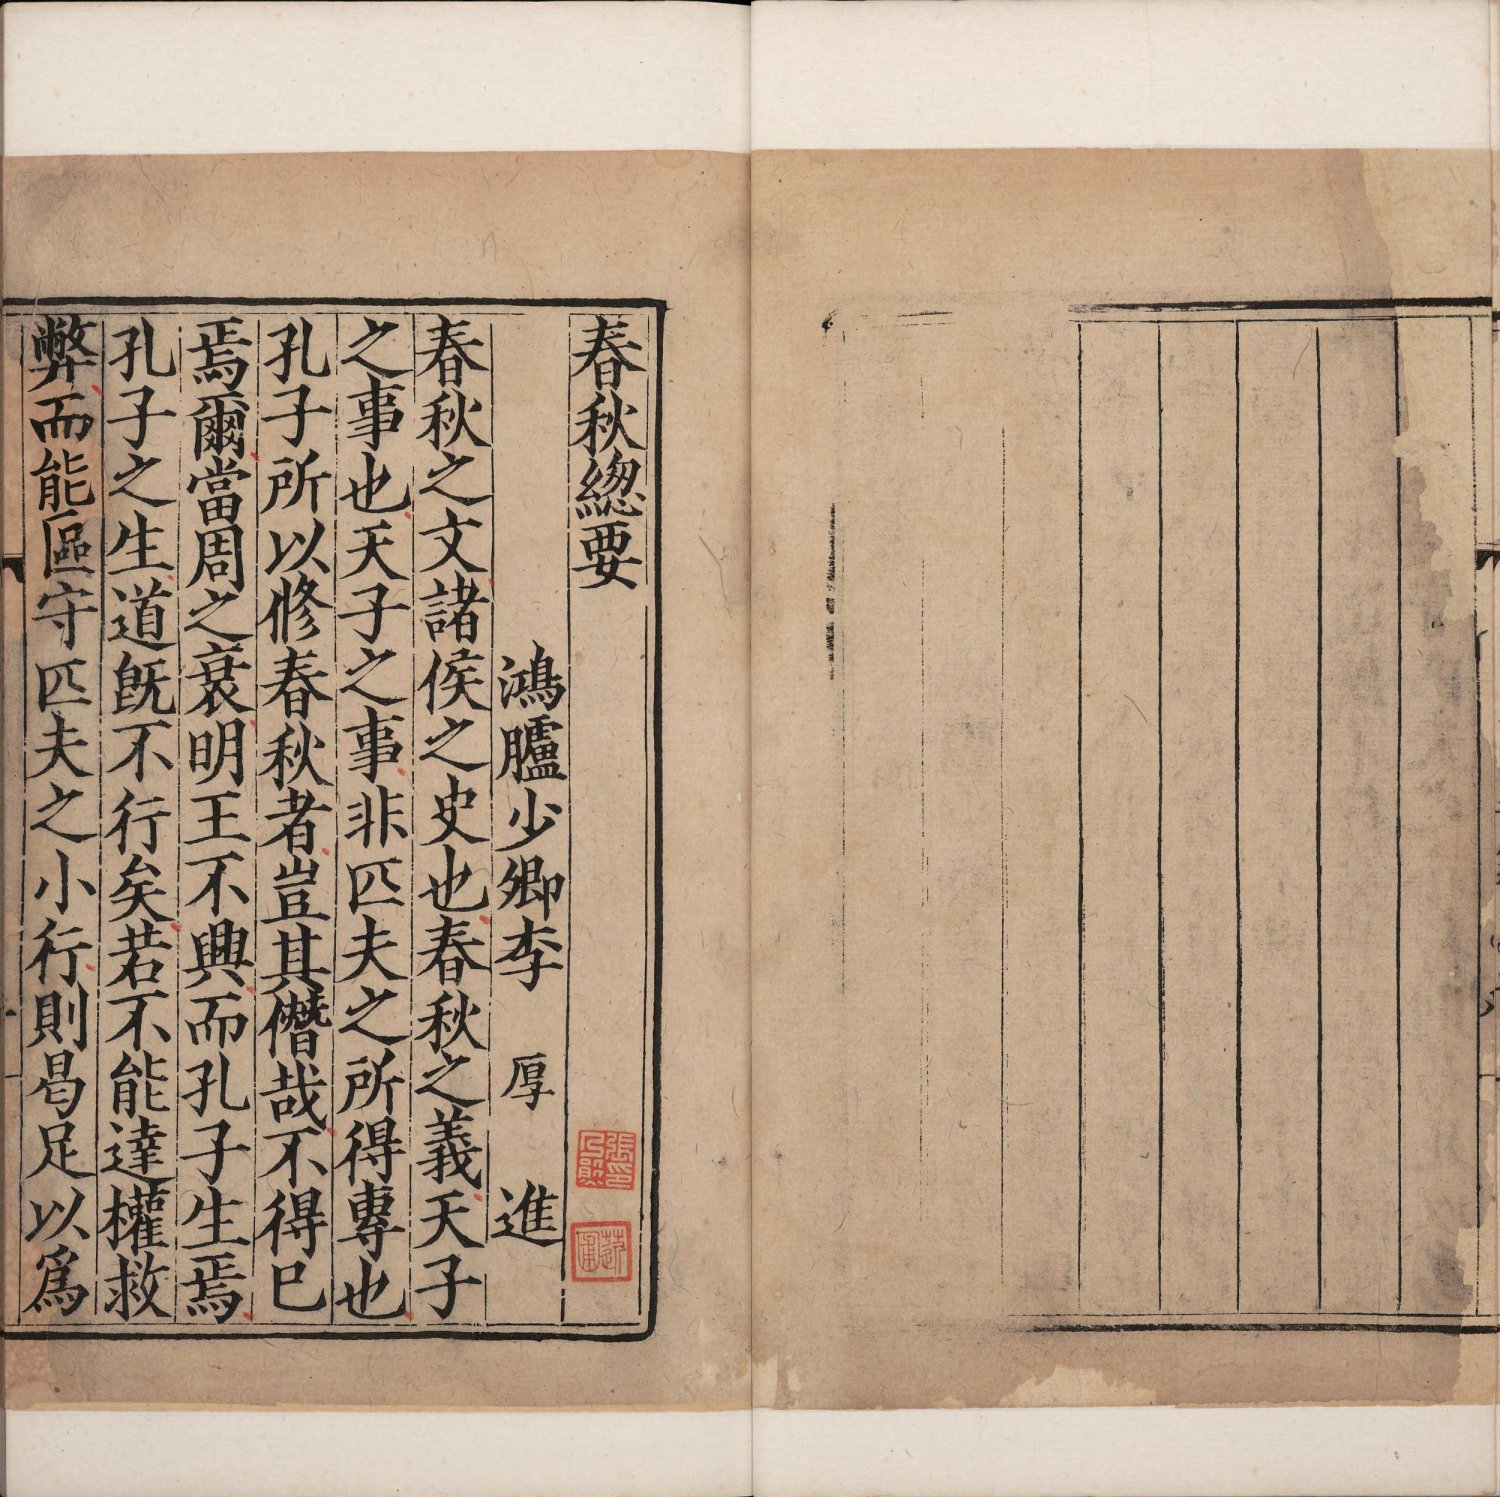 春秋緫要
鴻臚少卿李 厚 進
春秋之文諸侯之史也春秋之義天子
之事也天子之事非匹夫之所得專也
孔子所以修春秋者豈其僭哉不得已
焉爾當周之衰明王不興而孔子生焉
孔子之生道旣不行矣若不能達權救
弊而能區守匹夫之小行則曷足以爲
張乃熊印
芹圃